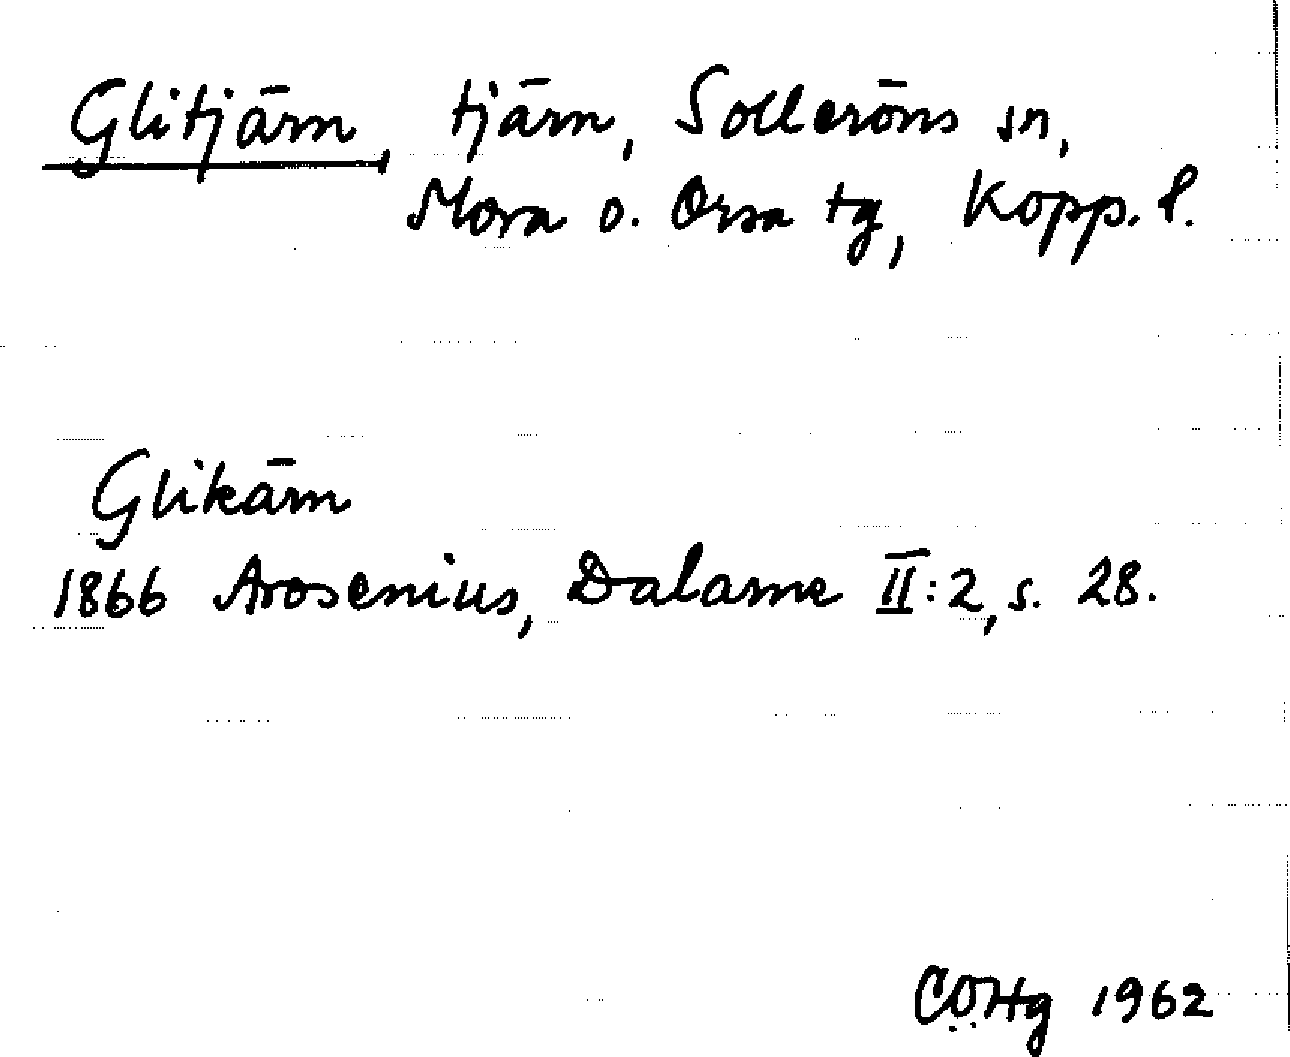 Glitjärn, tjärn, Solleröns sn,
Mora o. Orsa tg, Kopp. l.
Glikärn
1866 Arosenius, Dalarne II:2, s. 28.
CÖHg 1962